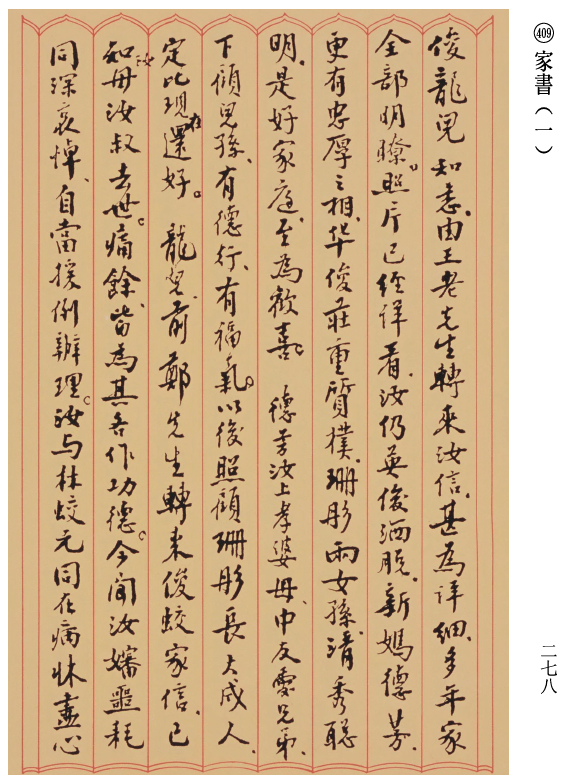 409 家書（一）
俊龍兒 知悉。由王老先生轉來汝信、甚為詳細、多年家
全部明瞭。照片已經詳看、汝仍英俊洒脫、新媽德芳、
更有忠厚之相、华俊莊重質樸、珊彤兩女孫、清秀聪
明、是好家庭、至為欣喜。 德芳汝上孝婆母、中友愛兄弟、
下顧兒孫、有德行、有福氣。以後照顧珊彤長大成人、
定比現在還好。 龍兒、前鄭先生轉来俊蛟家信、已
知汝母汝叔去世。痛餘、皆為其各作功德。今聞汝嬸噩耗
同深哀悼、自當援例辦理。汝与林蛟元同在痛 盡心
二七八